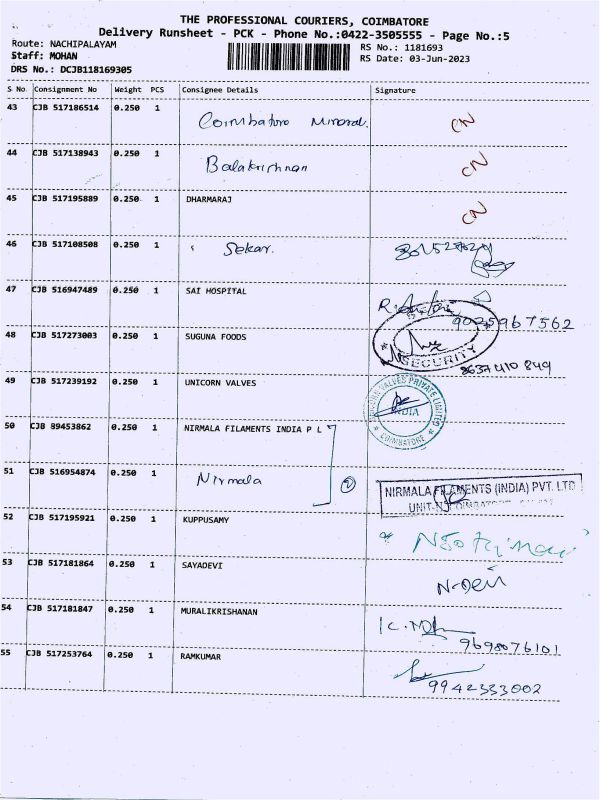 THE PROFESSIONAL COURIERS, COIMBATORE
Delivery Runsheet - PCK - Phone No.:0422-3505555 - Page No.:5
Route: NACHIPALAYAM RS No.: 1181693
Staff: MOHAN RS Date: 03-Jun-2023
DRS No.: DCJB118169305
S No Consignment No Weight PCS Consignee Details Signature
43 CJB 517186514 0.250 1 Coimbatore Mineral. CN
44 CJB 517138943 0.250 1 Balakrishnan CN
45 CJB 517195889 0.250 1 DHARMARAJ CN
46 CJB 517108508 0.250 1 Sekar.
47 CJB 516947489 0.250 1 SAI HOSPITAL
9025967562
48 CJB 517273003 0.250 1 SUGUNA FOODS SECURITY
8637410849
49 CJB 517239192 0.250 1 UNICORN VALVES UNICORN VALVES PRIVATE LIMITED
INDIA
COIMBATORE
50 CJB 89453862 0.250 1 NIRMALA FILAMENTS INDIA P L
51 CJB 516954874 0.250 1 Nirmala 2 NIRMALA FILAMENTS (INDIA) PVT. LTD
52 CJB 517195921 0.250 1 KUPPUSAMY
53 CJB 517181864 0.250 1 SAYADEVI N-Devi
54 CJB 517181847 0.250 1 MURALIKRISHANAN
9698076101
55 CJB 517253764 0.250 1 RAMKUMAR
9942333002